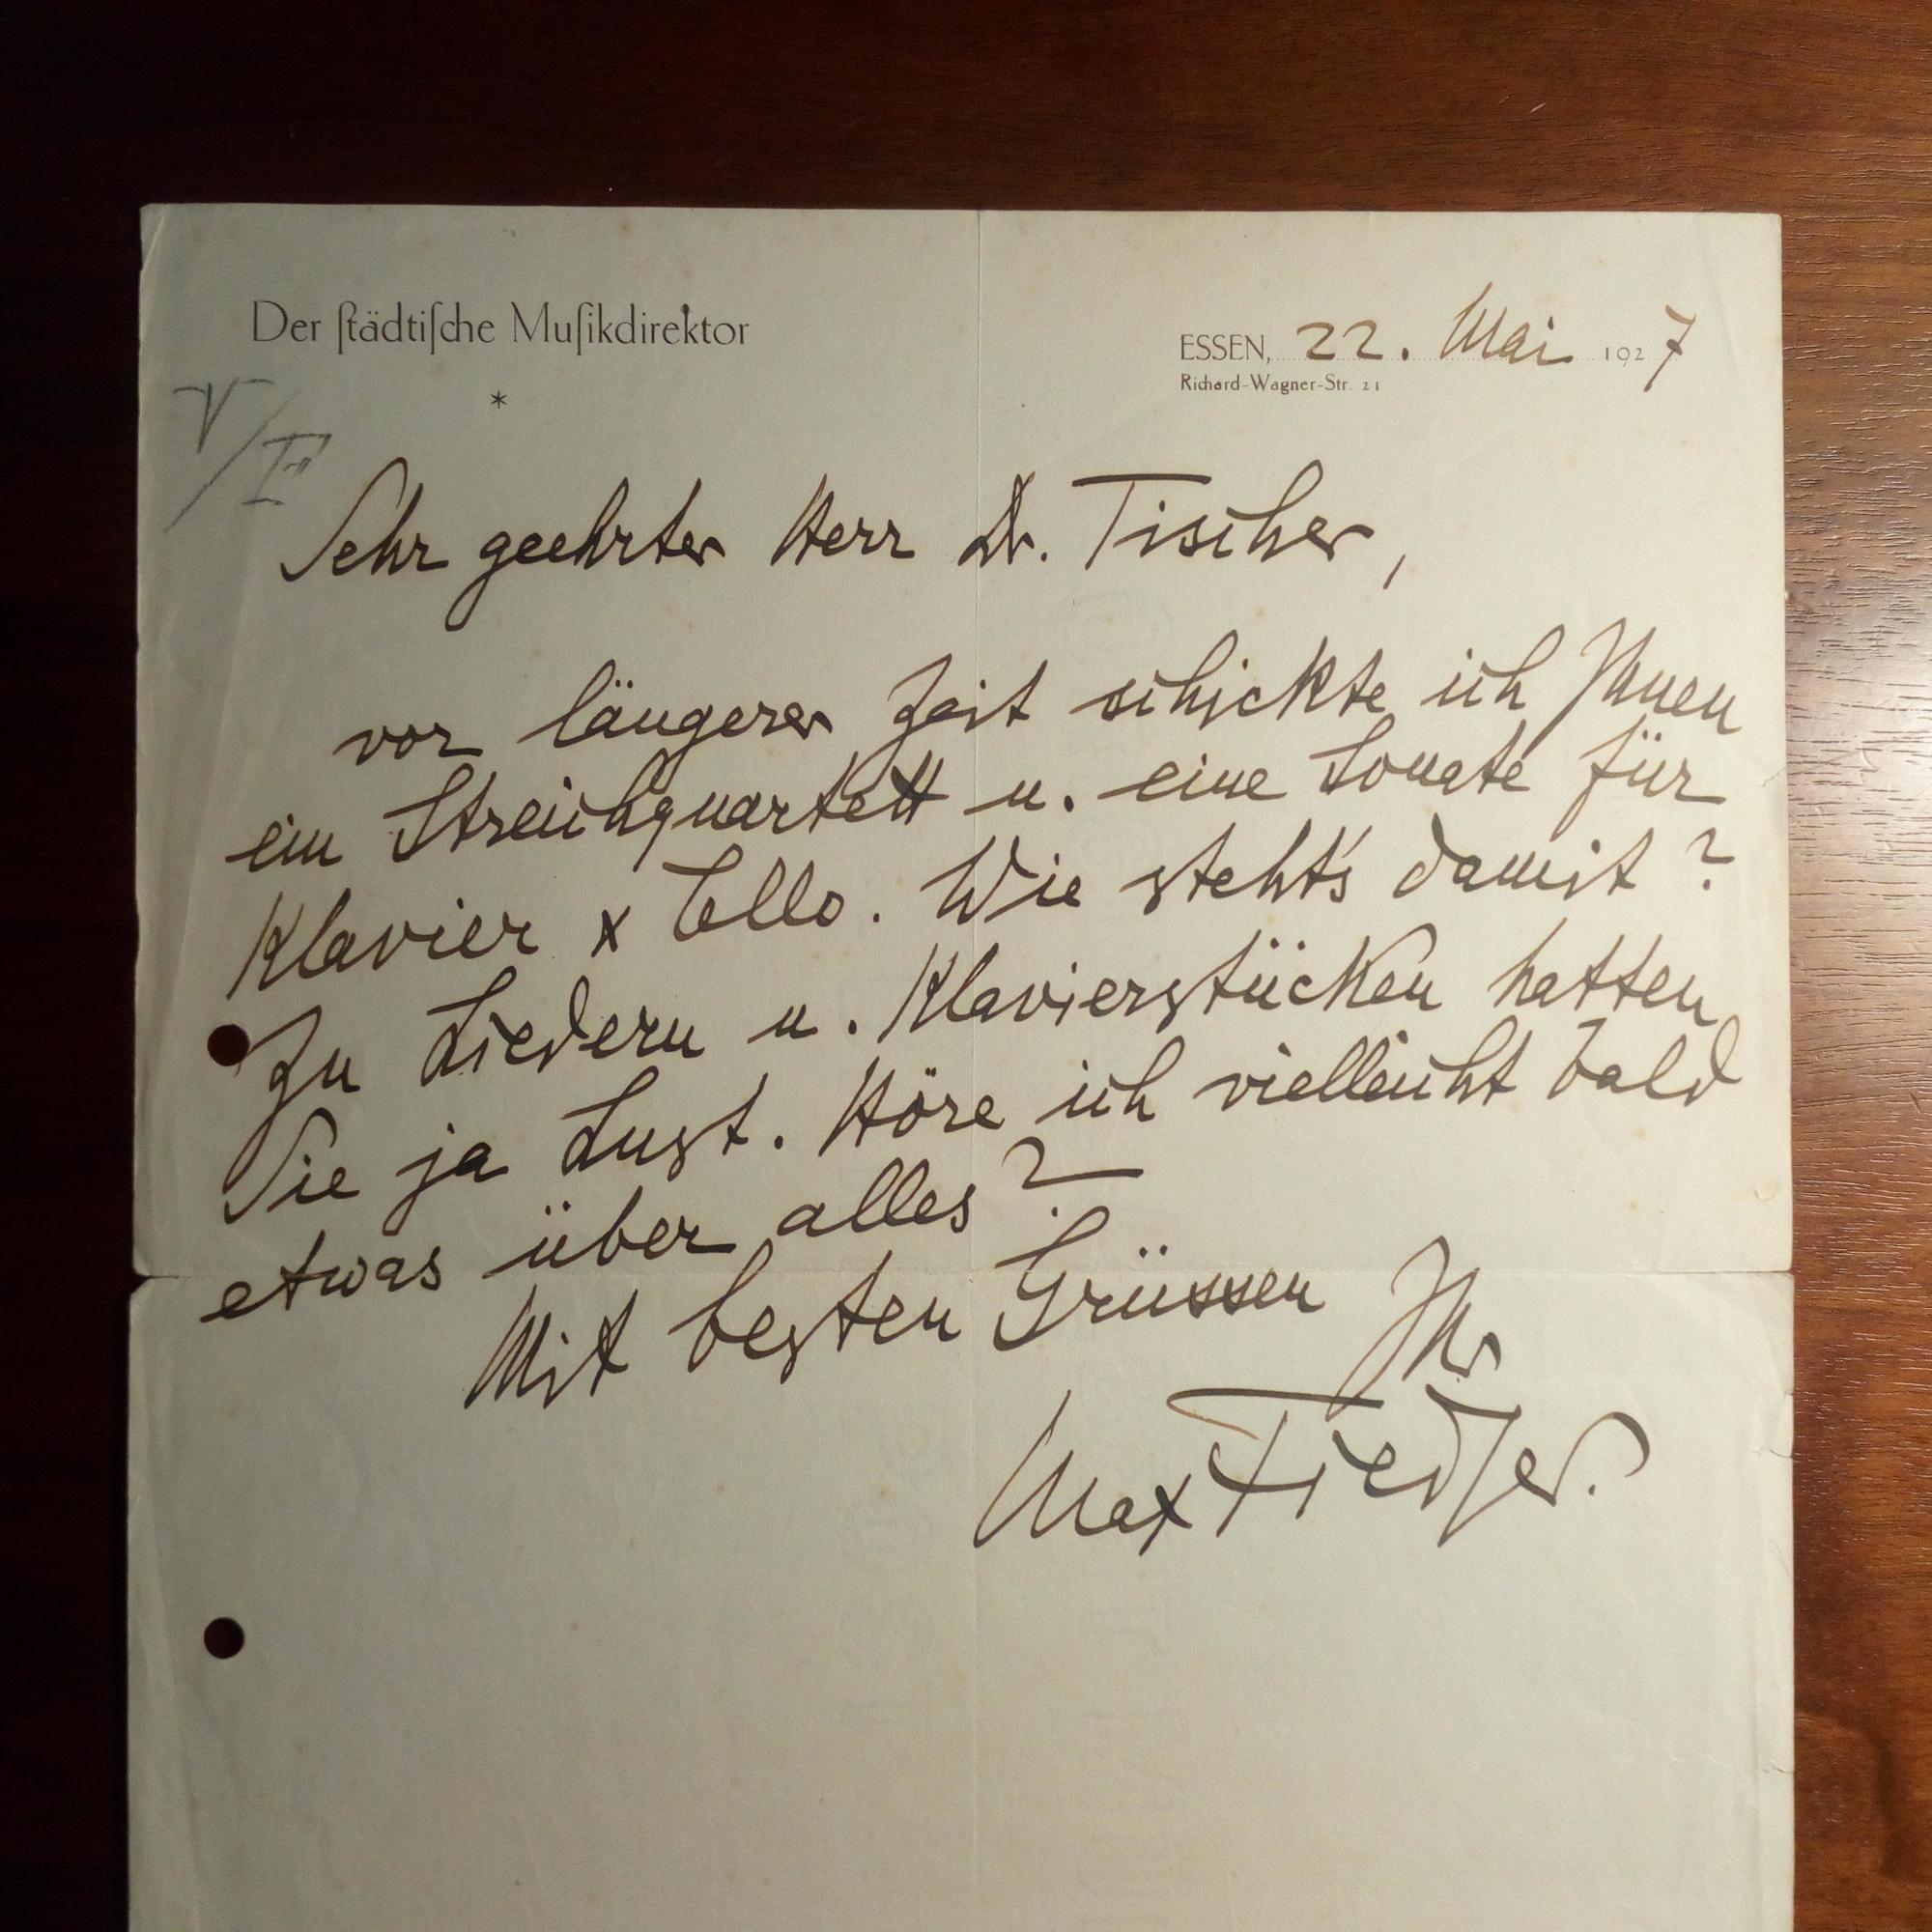 Der ſtädtiſche Muſikdirektor
*
ESSEN, 22. Mai 1927
Richard-Wagner-Str. 21
V/F
Sehr geehrter Herr Dr. Tischer,
vor längerer Zeit schickte ich Ihnen
ein Streichquartett u. eine Sonate für
Klavier x Cello. Wie steht's damit?
Zu Liedern u. Klavierstücken hatten
Sie ja Lust. Höre ich vielleicht bald
etwas über alles?
Mit besten Grüssen Ihr
Max Fiedler.